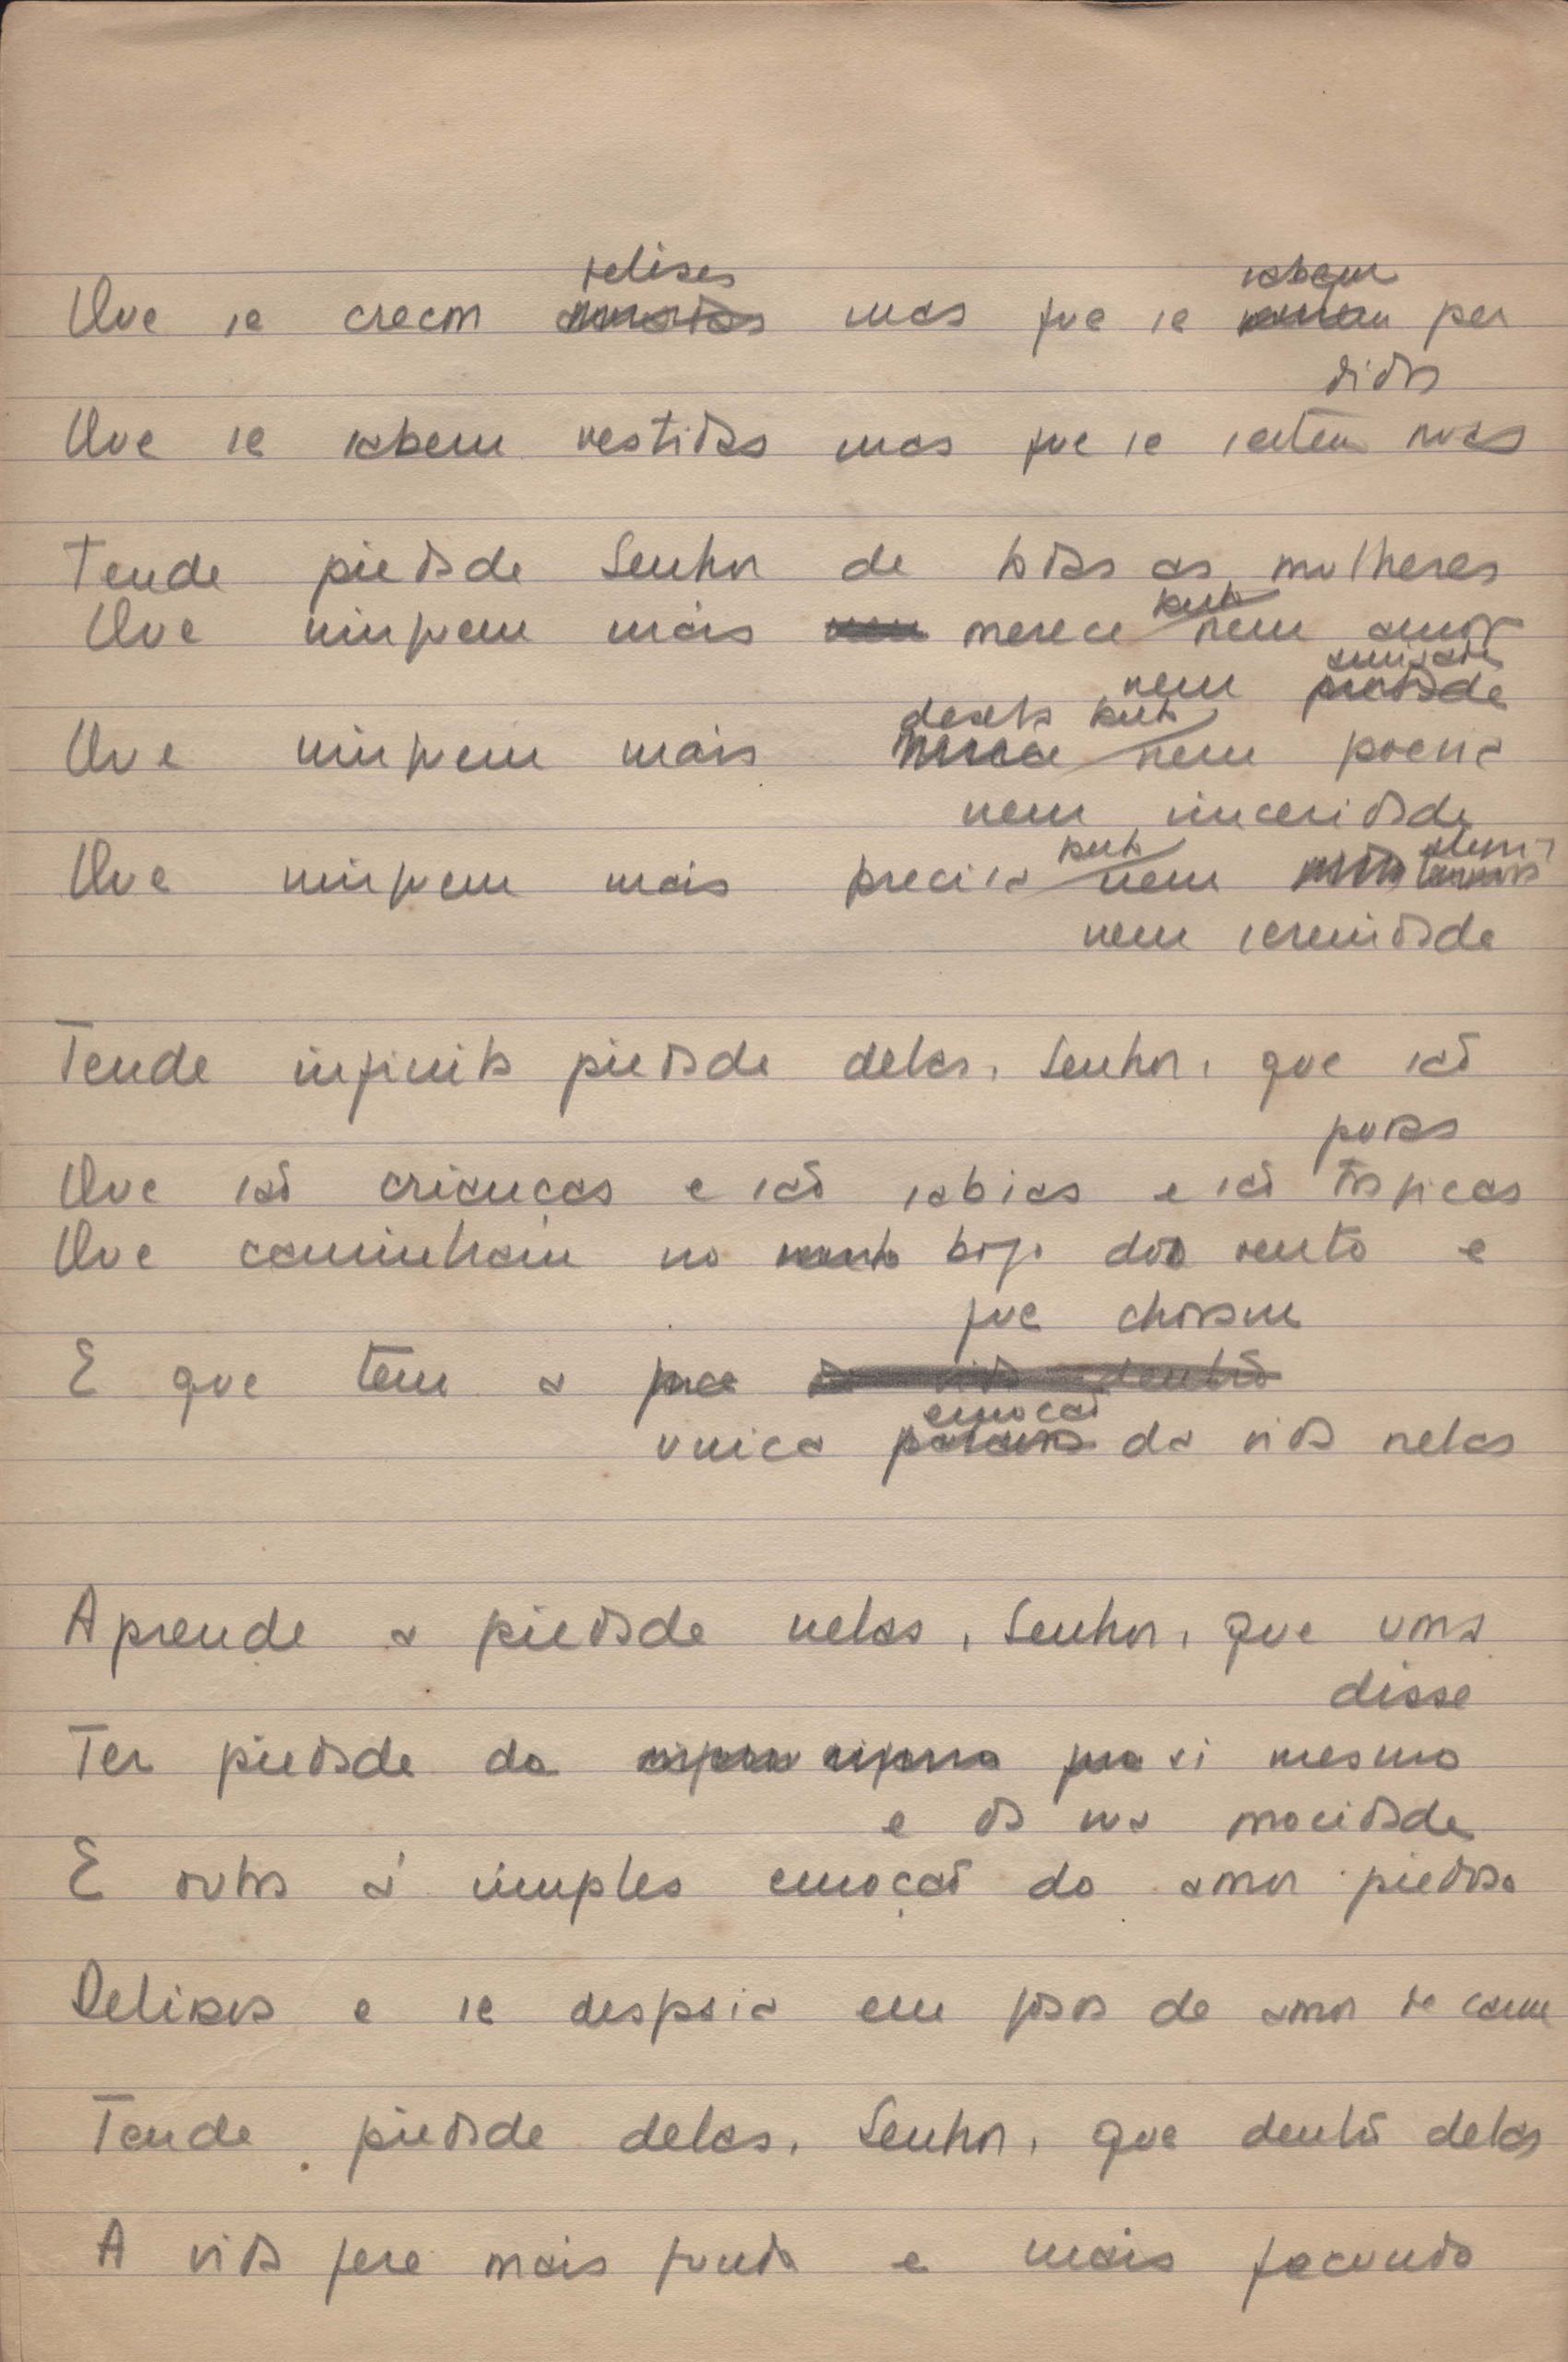 felizes sabem
Que se creem mas que se per
didos
Que se sabem vestidas mas que se sentem nuas
Tende piedade Senhor de todas as mulheres
tanto
Que ninguem mais merece nem amor
amizade
nem piedade
deseja tanto
Que ninguem mais merece nem poesia
nem sinceridade
tanto alegria
Que ninguem mais precisa nem
nem serenidade
Tende infinita piedade delas, Senhor, que são
puras
Que são crianças e são sabias e são trágicas
Que caminham no bojo do vento e
que choram
E que tem a
emoção
unica palavra da vida nelas
Aprende a piedade nelas, Senhor, que uma
disse
Ter piedade de si mesmo
e da sua mocidade
E outra à simples emoção do amor piedoso
Delirava e se despia em gozos de amor de carne
Tende piedade delas, Senhor, que dentro delas
A vida fere mais fundo e mais fecundo